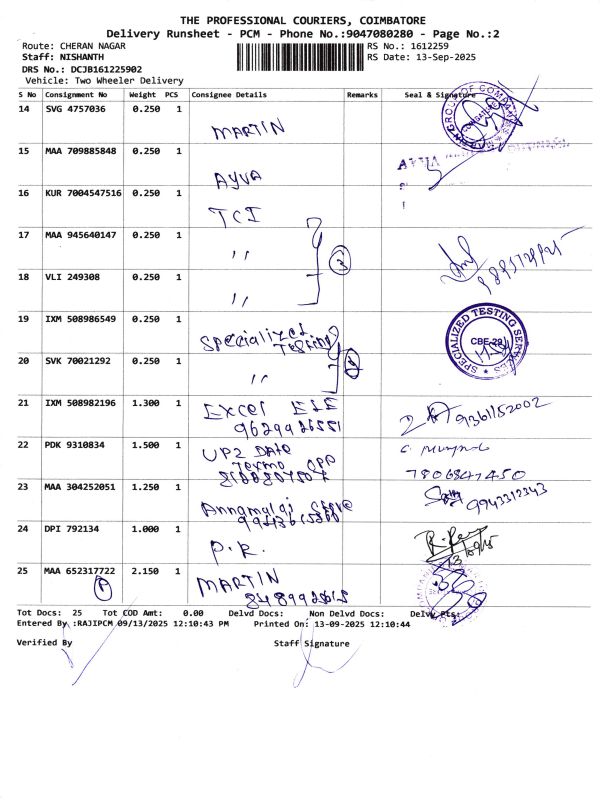 THE PROFESSIONAL COURIERS, COIMBATORE
Delivery Runsheet - PCM - Phone No.:9047080280 - Page No.:2
Route: CHERAN NAGAR RS No.: 1612259
Staff: NISHANTH RS Date: 13-Sep-2025
DRS No.: DCJB161225902
Vehicle: Two Wheeler Delivery
S No Consignment No Weight PCS Consignee Details Remarks Seal & Signature
14 SVG 4757036 0.250 1
MARTIN
15 MAA 709885848 0.250 1
AYVA
16 KUR 7004547516 0.250 1
TCI
17 MAA 945640147 0.250 1
"
18 VLI 249308 0.250 1
"
19 IXM 508986549 0.250 1
Specialized Testing
SPECIALIZED TESTING SERVICES
CBE-29
20 SVK 70021292 0.250 1
"
21 IXM 508982196 1.300 1
Excel 9361152002
22 PDK 9310834 1.500 1
UP2 DATE
7806847450
23 MAA 304252051 1.250 1
Annamalai
9943312343
24 DPI 792134 1.000 1
P.R.
25 MAA 652317722 2.150 1
P
MARTIN
Tot Docs: 25 Tot COD Amt: 0.00 Delvd Docs: Non Delvd Docs: Delvd Pts:
Entered By :RAJIPCM 09/13/2025 12:10:43 PM Printed On: 13-09-2025 12:10:44
Verified By Staff Signature